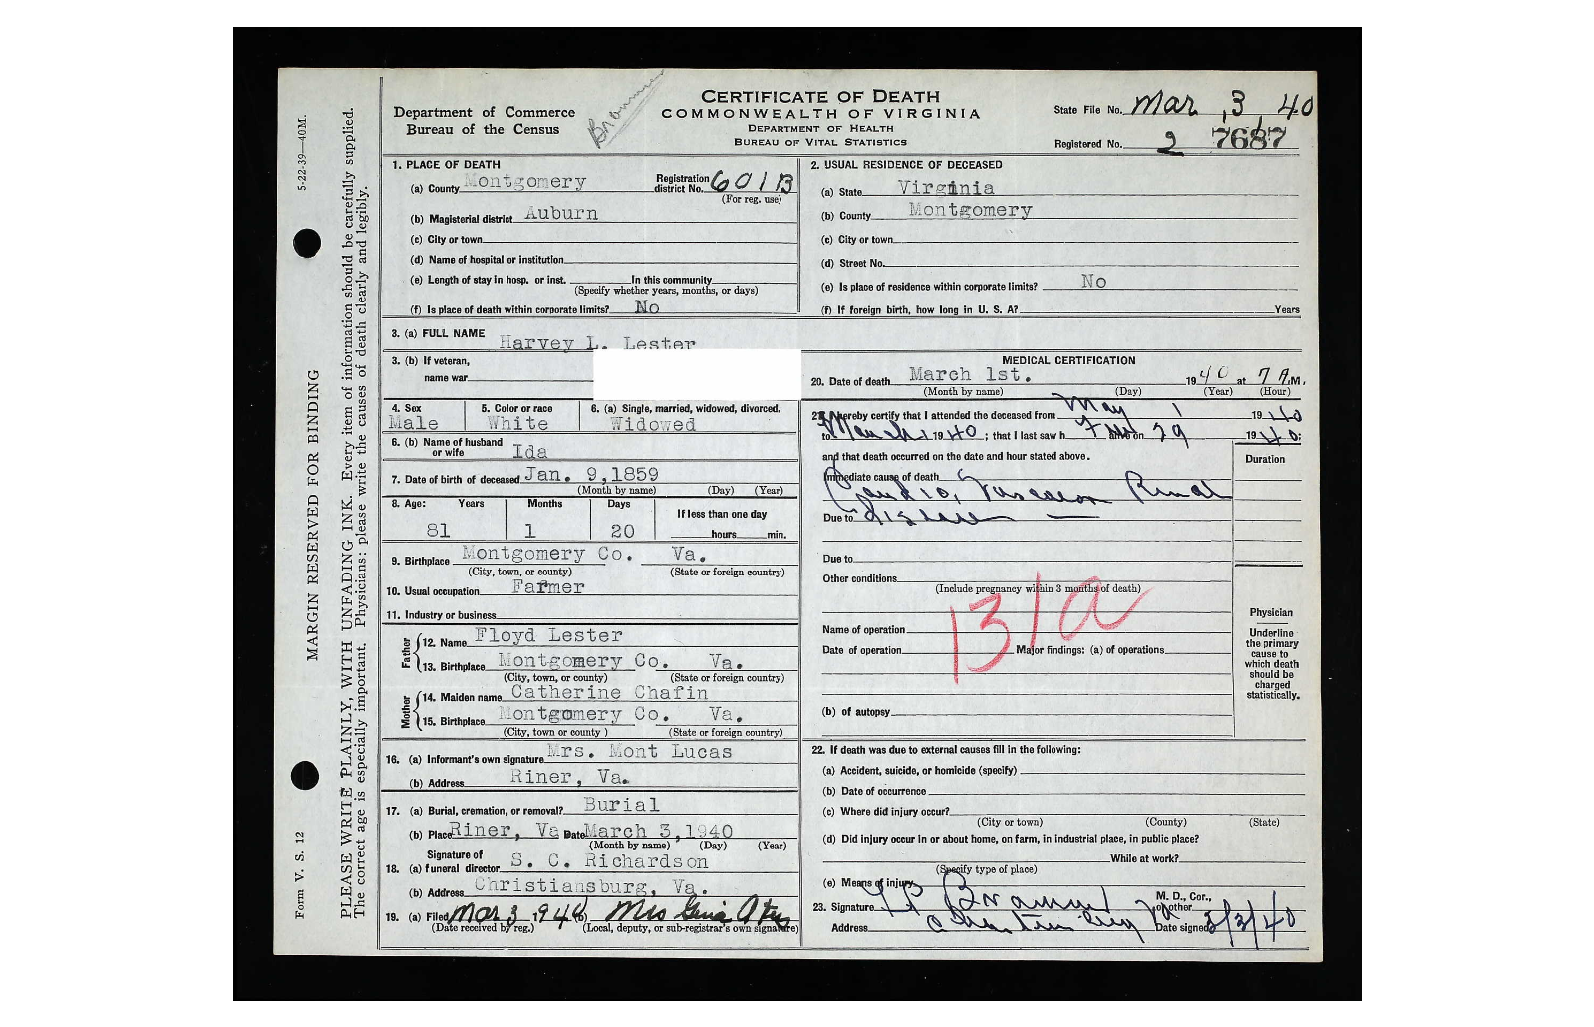 5-22-39—40M.
MARGIN RESERVED FOR BINDING
Form V. S. 12
PLEASE WRITE PLAINLY, WITH UNFADING INK. Every item of information should be carefully supplied.
The correct age is especially important. Physicians: please write the causes of death clearly and legibly.
Department of Commerce
Bureau of the Census
CERTIFICATE OF DEATH
COMMONWEALTH OF VIRGINIA
DEPARTMENT OF HEALTH
BUREAU OF VITAL STATISTICS
State File No. Mar 3, 40
Registered No. 2 7687
1. PLACE OF DEATH
(a) County Montgomery Registration district No. 601B
(For reg. use)
(b) Magisterial district Auburn
(c) City or town
(d) Name of hospital or institution
(e) Length of stay in hosp. or inst. In this community
(Specify whether years, months, or days)
(f) Is place of death within corporate limits? No
2. USUAL RESIDENCE OF DECEASED
(a) State Virginia
(b) County Montgomery
(c) City or town
(d) Street No.
(e) Is place of residence within corporate limits? No
(f) If foreign birth, how long in U. S. A? Years
3. (a) FULL NAME Harvey L. Lester
3. (b) If veteran,
name war
4. Sex Male
5. Color or race White
6. (a) Single, married, widowed, divorced. Widowed
6. (b) Name of husband or wife Ida
7. Date of birth of deceased Jan. 9,1859
(Month by name) (Day) (Year)
8. Age: Years Months Days If less than one day
81 1 20 hours min.
9. Birthplace Montgomery Co. Va.
(City, town, or county) (State or foreign country)
10. Usual occupation Farmer
11. Industry or business
Father
12. Name Floyd Lester
13. Birthplace Montgomery Co. Va.
(City, town, or county) (State or foreign country)
Mother
14. Maiden name Catherine Chafin
15. Birthplace Montgomery Co. Va.
(City, town or county ) (State or foreign country)
16. (a) Informant's own signature Mrs. Mont Lucas
(b) Address Riner, Va.
17. (a) Burial, cremation, or removal? Burial
(b) Place Riner, Va Date March 3,1940
(Month by name) (Day) (Year)
18. (a) Signature of funeral director S. C. Richardson
(b) Address Christiansburg, Va.
19. (a) Filed Mar 3 1940 (b) Mrs
(Date received by reg.) (Local, deputy, or sub-registrar's own signature)
MEDICAL CERTIFICATION
20. Date of death March 1st. 1940 at 7 A.M.
(Month by name) (Day) (Year) (Hour)
21. I hereby certify that I attended the deceased from May 1 1940
to March 1 1940; that I last saw h alive on 29 1940:
and that death occurred on the date and hour stated above. Duration
Immediate cause of death Cardio, Vascular Renal
Due to disease
Due to
Other conditions
(Include pregnancy within 3 months of death)
131a
Name of operation
Date of operation Major findings: (a) of operations
(b) of autopsy
Physician
Underline
the primary
cause to
which death
should be
charged
statistically.
22. If death was due to external causes fill in the following:
(a) Accident, suicide, or homicide (specify)
(b) Date of occurrence
(c) Where did injury occur?
(City or town) (County) (State)
(d) Did injury occur in or about home, on farm, in industrial place, in public place?
While at work?
(Specify type of place)
(e) Means of injury
23. Signature M. D., Cor., or other
Address Va Date signed 3/3/40